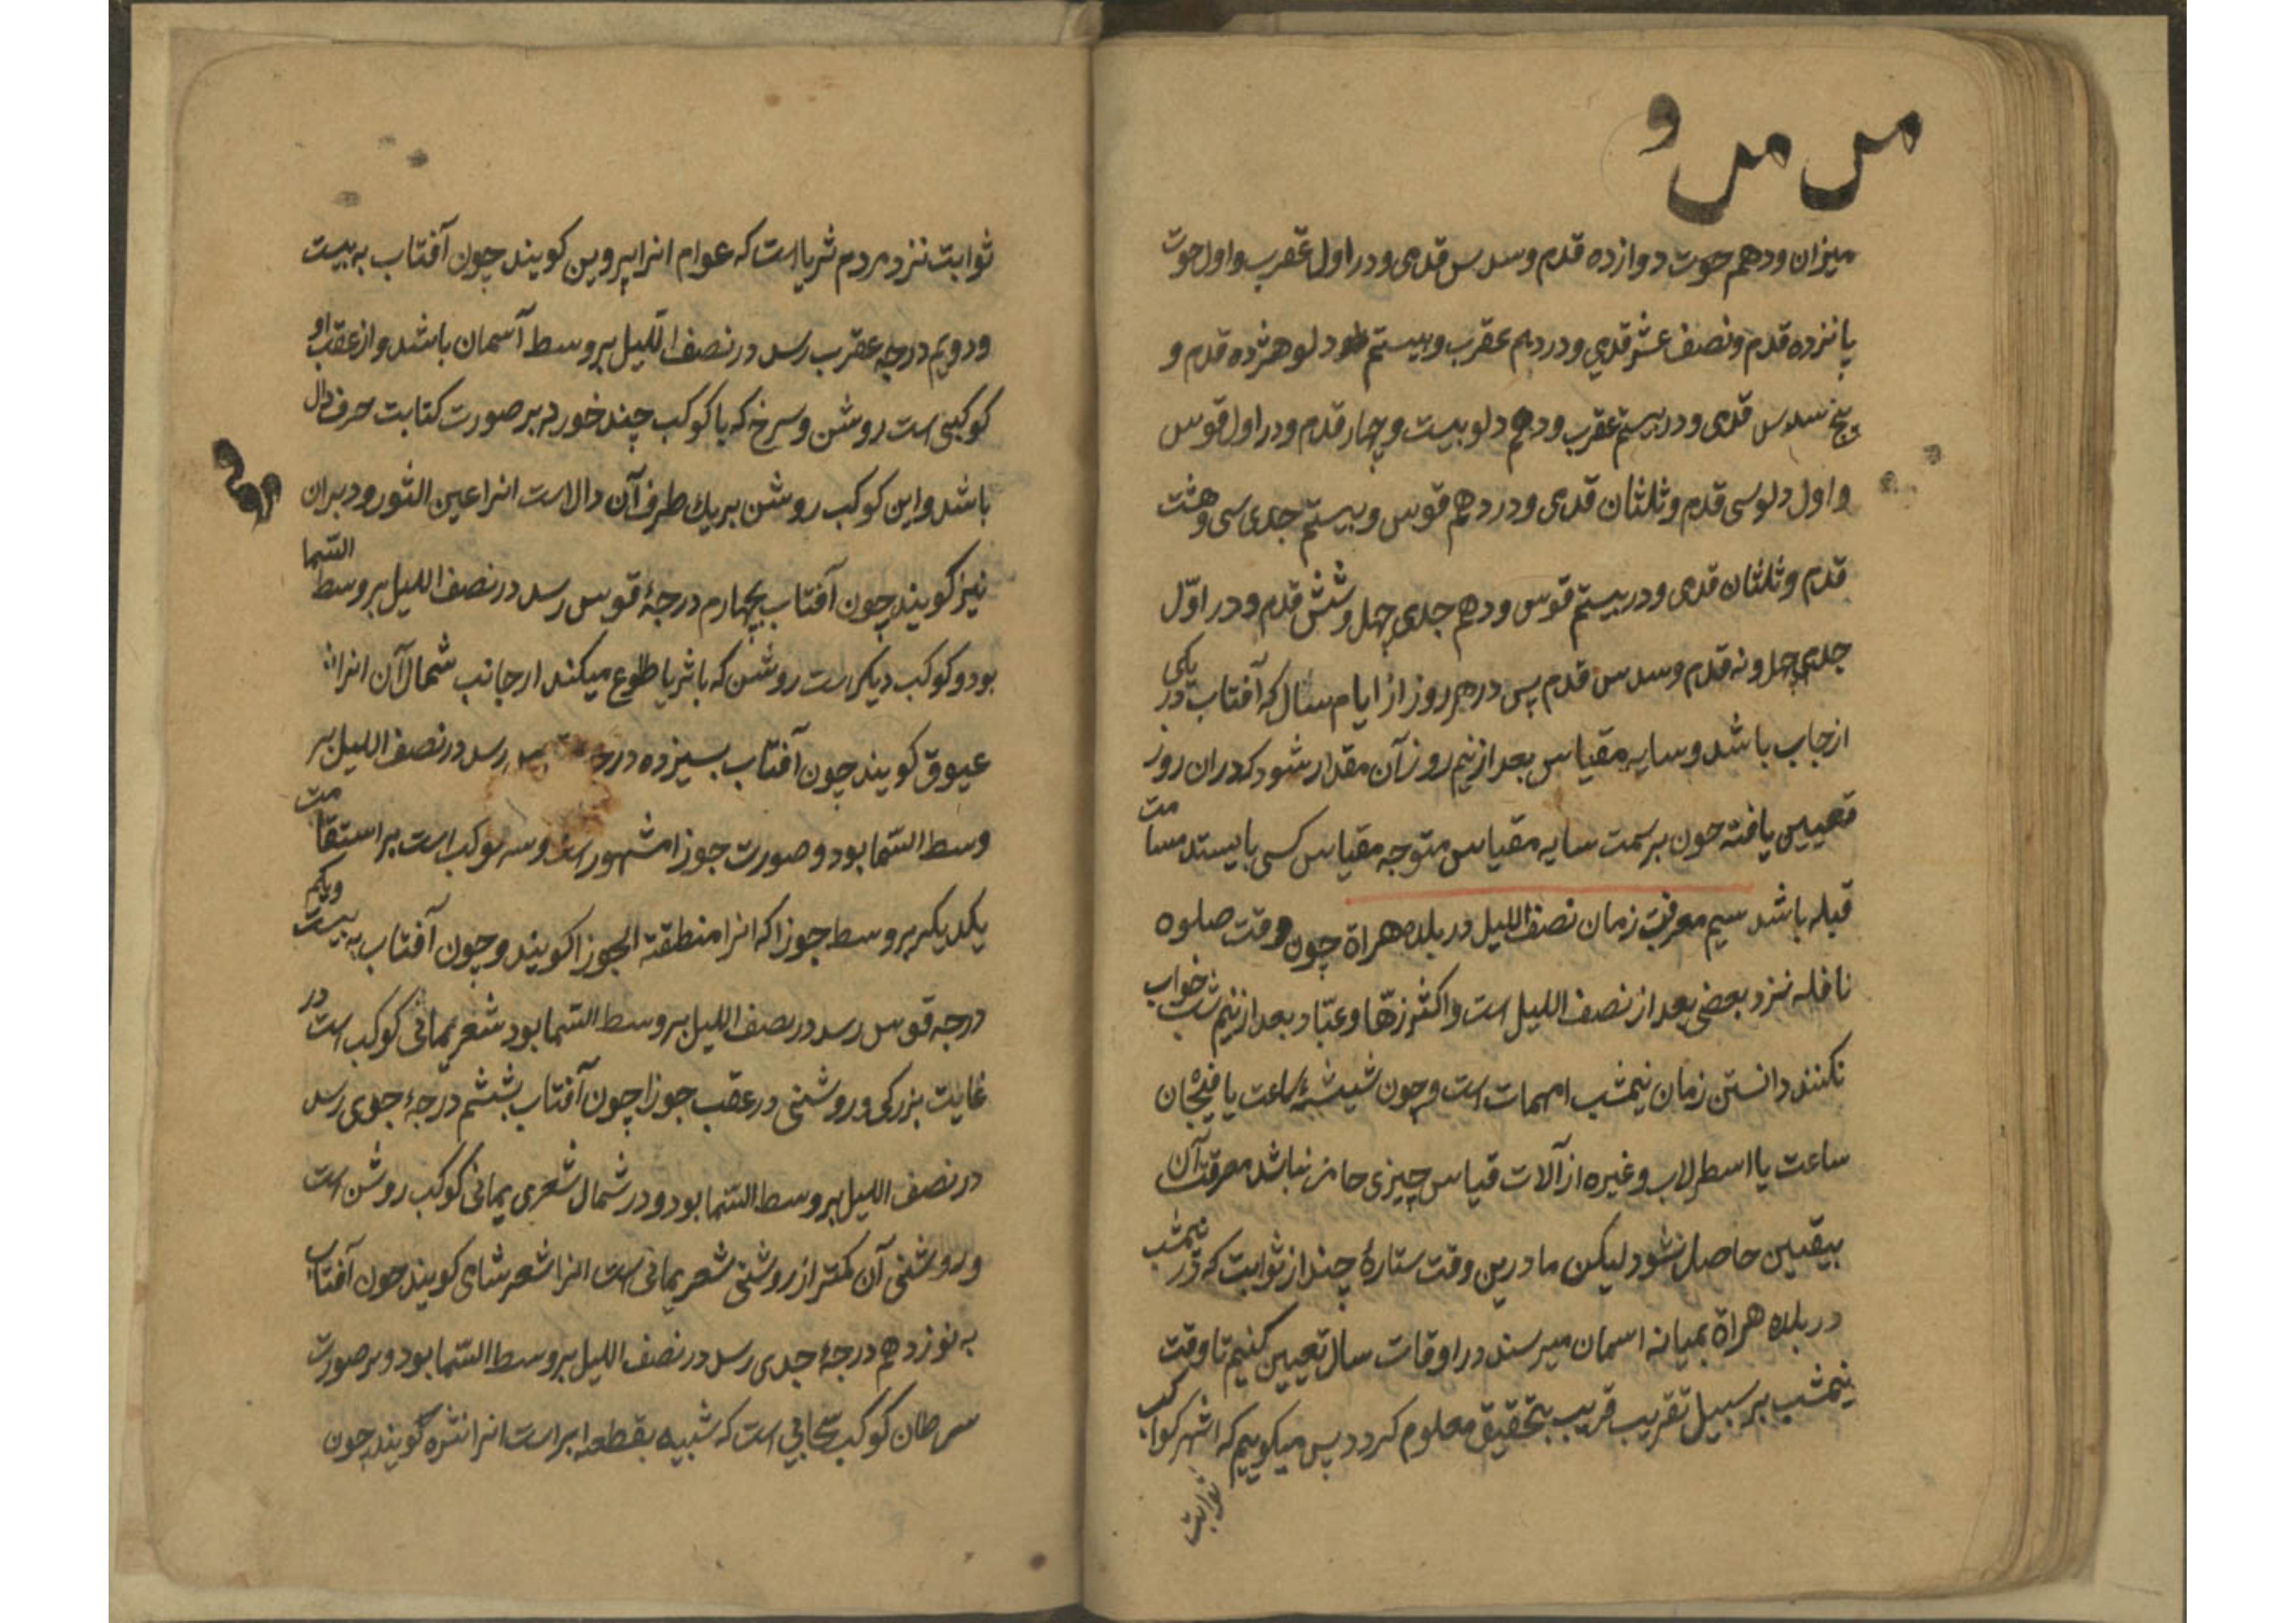 میزان ودهم حوت دوازده قدم وسدس قدمی ودر اول عقرب واول حوت
پانزده قدم ونصف عشر قدمی ودر دهم عقرب وبیستم دلو هژده قدم و
پنج سدس قدمی ودر بیستم عقرب ودهم دلو بیست وچهار قدم ودر اول قوس
واول دلو سی قدم وثلثان قدمی ودر دهم قوس وبیستم جدی سی وهشت
قدم وثلثان قدمی ودر بیستم قوس ودهم جدی چهل وشش قدم ودر اوّل
جدی چهل ونه قدم وسدس قدم پس در هر روز از ایام سال که آفتاب در یکی
ازحاب باشد وسایه مقیاس بعد از نیم روز آن مقدار شود که دران روز
تعیین یافته چون بر سمت سایه مقیاس متوجه مقیاس کسی بایستد مسامت
قبله باشد سیم معرفت زمان نصف اللیل در بلده هراة چون وقت صلوه
نافله نزد بعضی بعد از نصف اللیل است واکثر زهّا وعبّاد بعد از نیم شب خواب
نکنند دانستن زمان نیمشب امهمات است وچون شیشهٔ ساعت یا فنجان
ساعت یا اسطرلاب وغیره از آلات قیاس چیزی حاضر نباشد معرفت آن
بیقین حاصل نشود لیکن ما درین وقت ستارهٔ چند از ثوابت که در نیمشب
در بلده هراة بمیانه اسمان میرسند در اوقات سال تعیین کنیم تا وقت
نیمشب بر سبیل تقریب قریب بتحقیق معلوم کردد پس میکوییم که اشهر کواکب
ثوابت
ثوابت نزد مردم ثریا است که عوام انرا پروین کویند چون آفتاب به بیست
ودویم درجه عقرب رسد در نصف اللّیل بروسط آسمان باشد واز عقب او
کوکبی است روشن وسرخ که با کوکب چند خورد بر صورت کتابت حرف دال
باشد واین کوکب روشن بریك طرف آن دال است انرا عین الثور ودبران
نیز کویند چون آفتاب بچهارم درجهٔ قوس رسد در نصف اللیل بروسط السّما
بود وکوکب دیکر است روشن که با ثریا طلوع میکند از جانب شمال آن انرا
عیوق کویند چون آفتاب بسیزده رسد در نصف اللیل بر
وسط السّما بود وصورت جوزا مشهور است وسه کوکب است بر استقامت
یکدیکر بروسط جوزا که انرا منطقة الجوزا کویند وچون آفتاب به بیست ویکم
درجه قوس رسد در نصف اللیل بروسط السّما بود شعر یمانی کوکب است در
غایت بزرکی وروشنی در عقب جوزا چون آفتاب بششم درجهٔ جدی رسد
در نصف اللیل بروسط السّما بود ودر شمال شعری یمانی کوکب روشن است
وروشنی آن کمتر از روشنی شعر یمانی است انرا شعر شامی کویند چون آفتاب
به نوزدهم درجهٔ جدی رسد در نصف اللیل بروسط السّما بود وبر صورت
سرطان کوکب سحابی است که شبیه بقطعه ابر است انرا نثره کویند چون